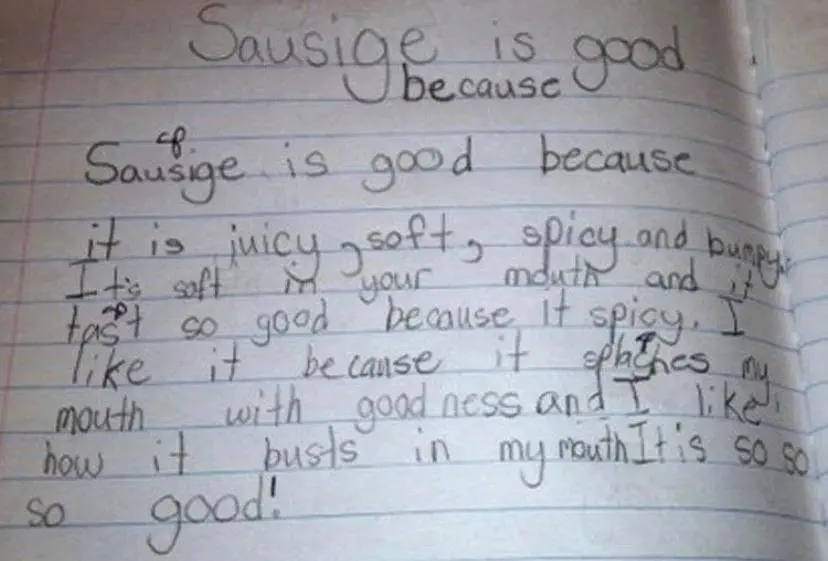 Sausige is good
because
sp
Sausige is good because
it is juicy, soft, spicy and bumpy.
It's soft in your mouth and it
tast so good because it spicy. I
like it because it splaches my
mouth with goodness and I like
how it busts in my mouth It is so so
so good!